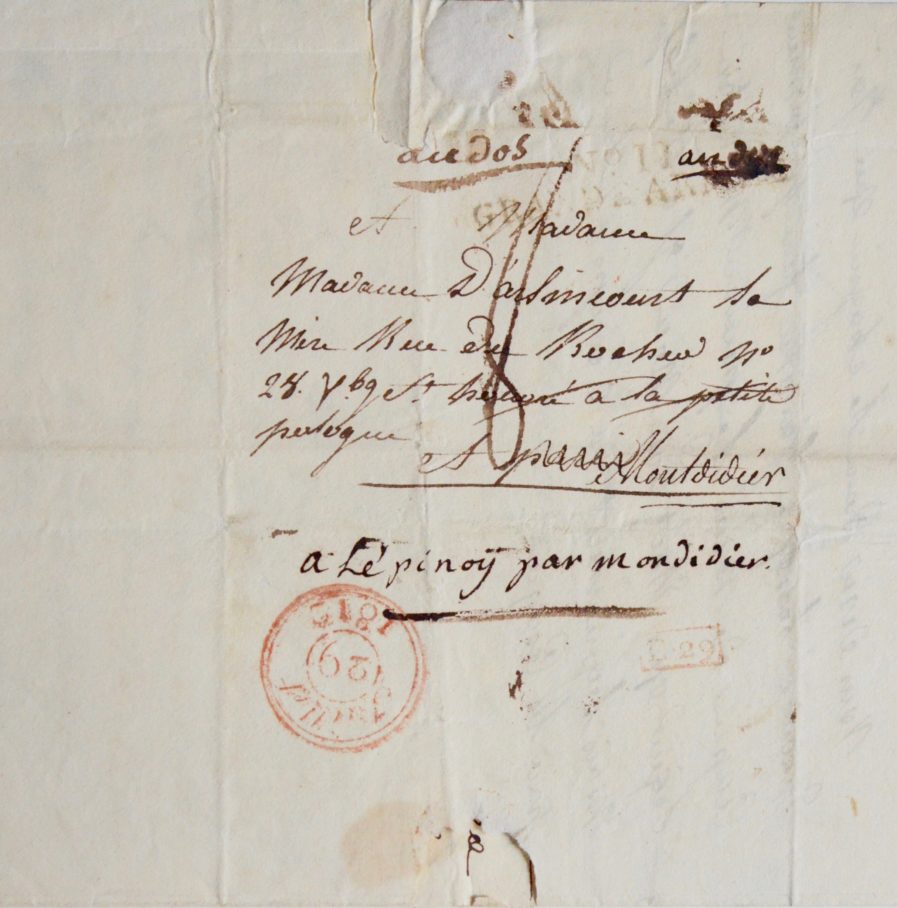 au dos au dos
A Madame
Madame D'arlincourt la
Mère Rue du Rocher n°
28. fbg St honoré a la petite
pologne
A paris Montdidiér
a Lépinoÿ par mondidier.
1812
29
Juillet
P.29